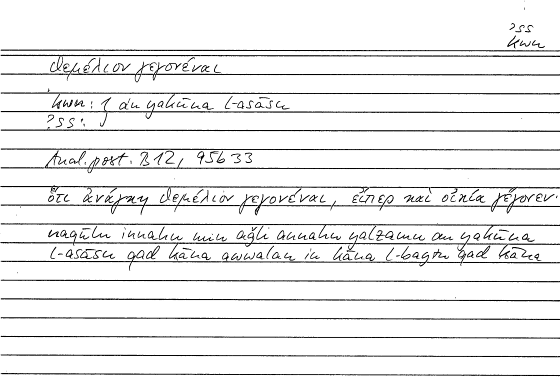 ʾss
kwn
θεμέλιον γεγονέναι
kwn: } an yakūna l-asāsu
ʾss:
Anal. post. B 12, 95b33
ὅτι ἀνάγκη θεμέλιον γεγονέναι, εἴπερ καὶ οἰκία γέγονεν·
naqūlu innahu min aǧli annahu yalzamu an yakūna
l-asāsu qad kāna awwalan in kāna l-baytu qad kāna